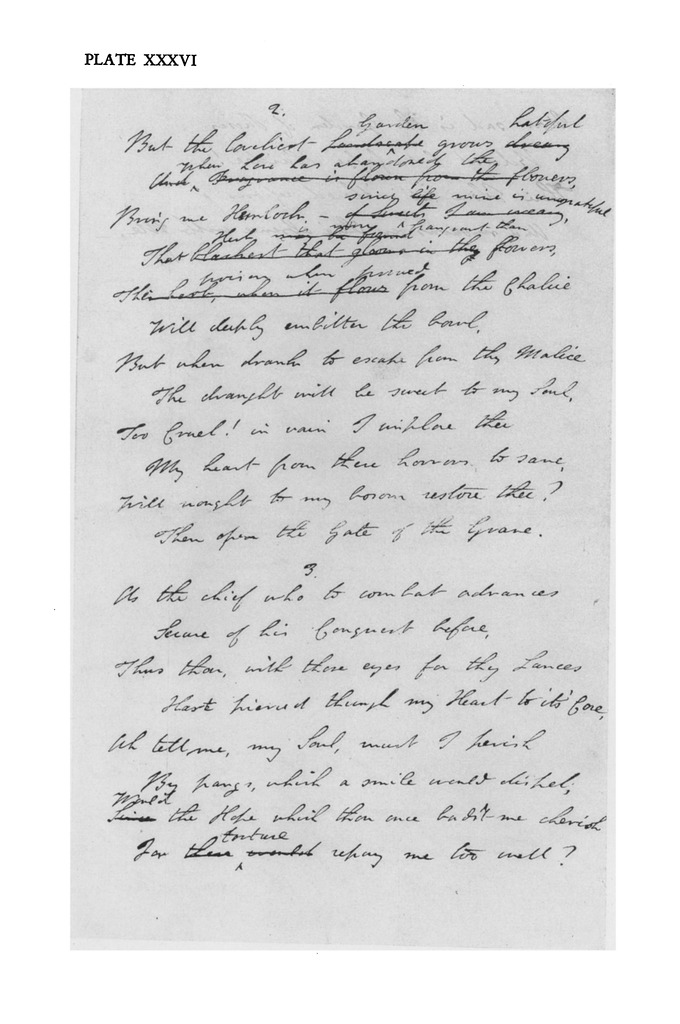 PLATE XXXVI
2.
Garden hateful
But the loveliest Landscape grows dreary
When Love has abandoned the
And Fragrance is flown from the flowers,
since life mine is ungrateful
Bring me Hemlock – of sweets I am weary,
Herb more fragrant than
That blackest that glows in thy flowers,
poison when poured
This when it flows from the Chalice
Will deeply embitter the bowl,
But when drank to escape from thy Malice
The draught will be sweet to my Soul,
Too Cruel! in vain I implore thee
My heart from these horrors to save,
Will nought to my bosom restore thee?
Then open the Gate of the Grave.
3.
As the chief who to combat advances
Secure of his Conquest before,
Thus thou, with those eyes for thy Lances
Hast pierced through my Heart to its' Core,
Ah tell me, my Soul, must I perish
By pangs, which a smile would dispel;
Would
Since the Hope which thou once bad'st me cherish
torture
For these would repay me too well?